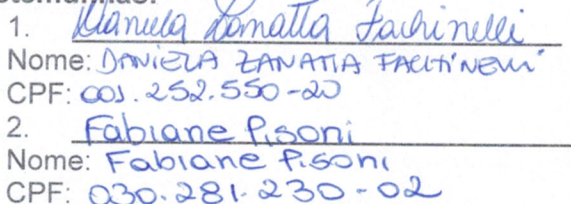 1. Daniela Zanatta Fachinelli
Nome: DANIELA ZANATTA FACHINELLI
CPF: 001.252.550-20
2. Fabiane Pisoni
Nome: Fabiane Pisoni
CPF: 030.281.230-02